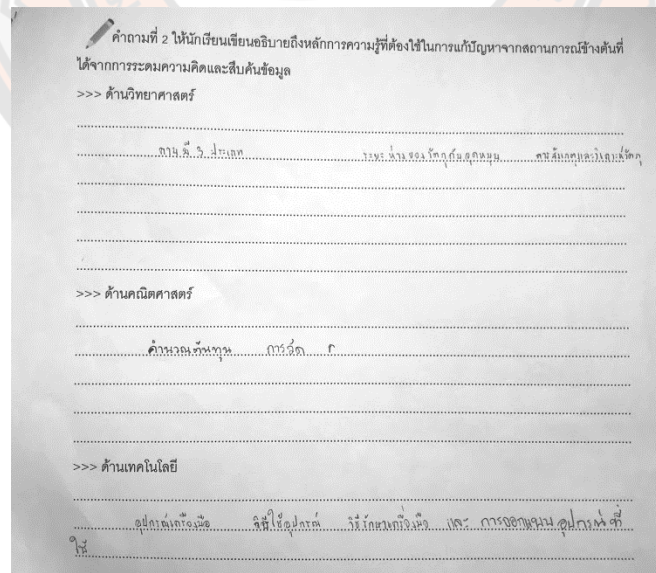 คำถามที่ 2 ให้นักเรียนเขียนอธิบายถึงหลักการความรู้ที่ต้องใช้ในการแก้ปัญหาจากสถานการณ์ข้างต้นที่
ได้จากการระดมความคิดและสืบค้นข้อมูล
>>> ด้านวิทยาศาสตร์
คาน มี 3 ประเภท ระยะห่างของวัตถุกับจุดหมุน การสังเกตุและวิเคราะห์วัตถุ
>>> ด้านคณิตศาสตร์
คำนวณต้นทุน การวัด
>>> ด้านเทคโนโลยี
อุปกรณ์เครื่องมือ วิธีใช้อุปกรณ์ วิธีรักษาเครื่องมือ และ การออกแบบอุปกรณ์ ที่
ใช้